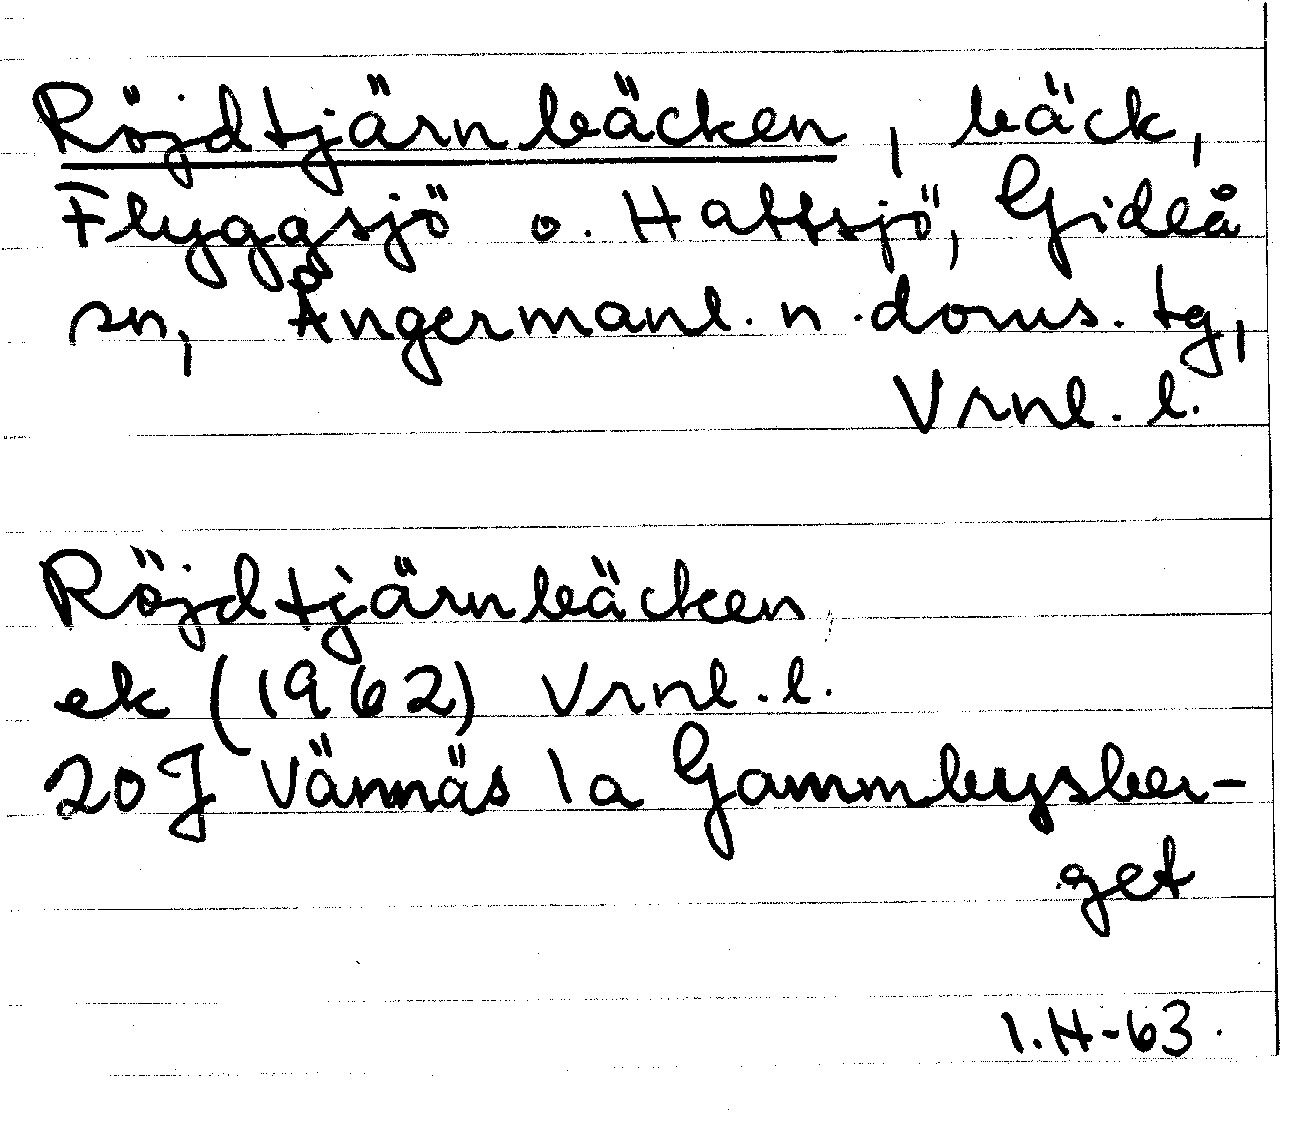 Röjdtjärnbäcken, bäck,
Flyggsjö o. Hattsjö, Gideå
sn, Ångermanl. n. doms. tg,
Vrnl. l.
Röjdtjärnbäcken
ek (1962) Vrnl. l.
20J Vännäs 1a Gammbysber-
get
I.H-63.